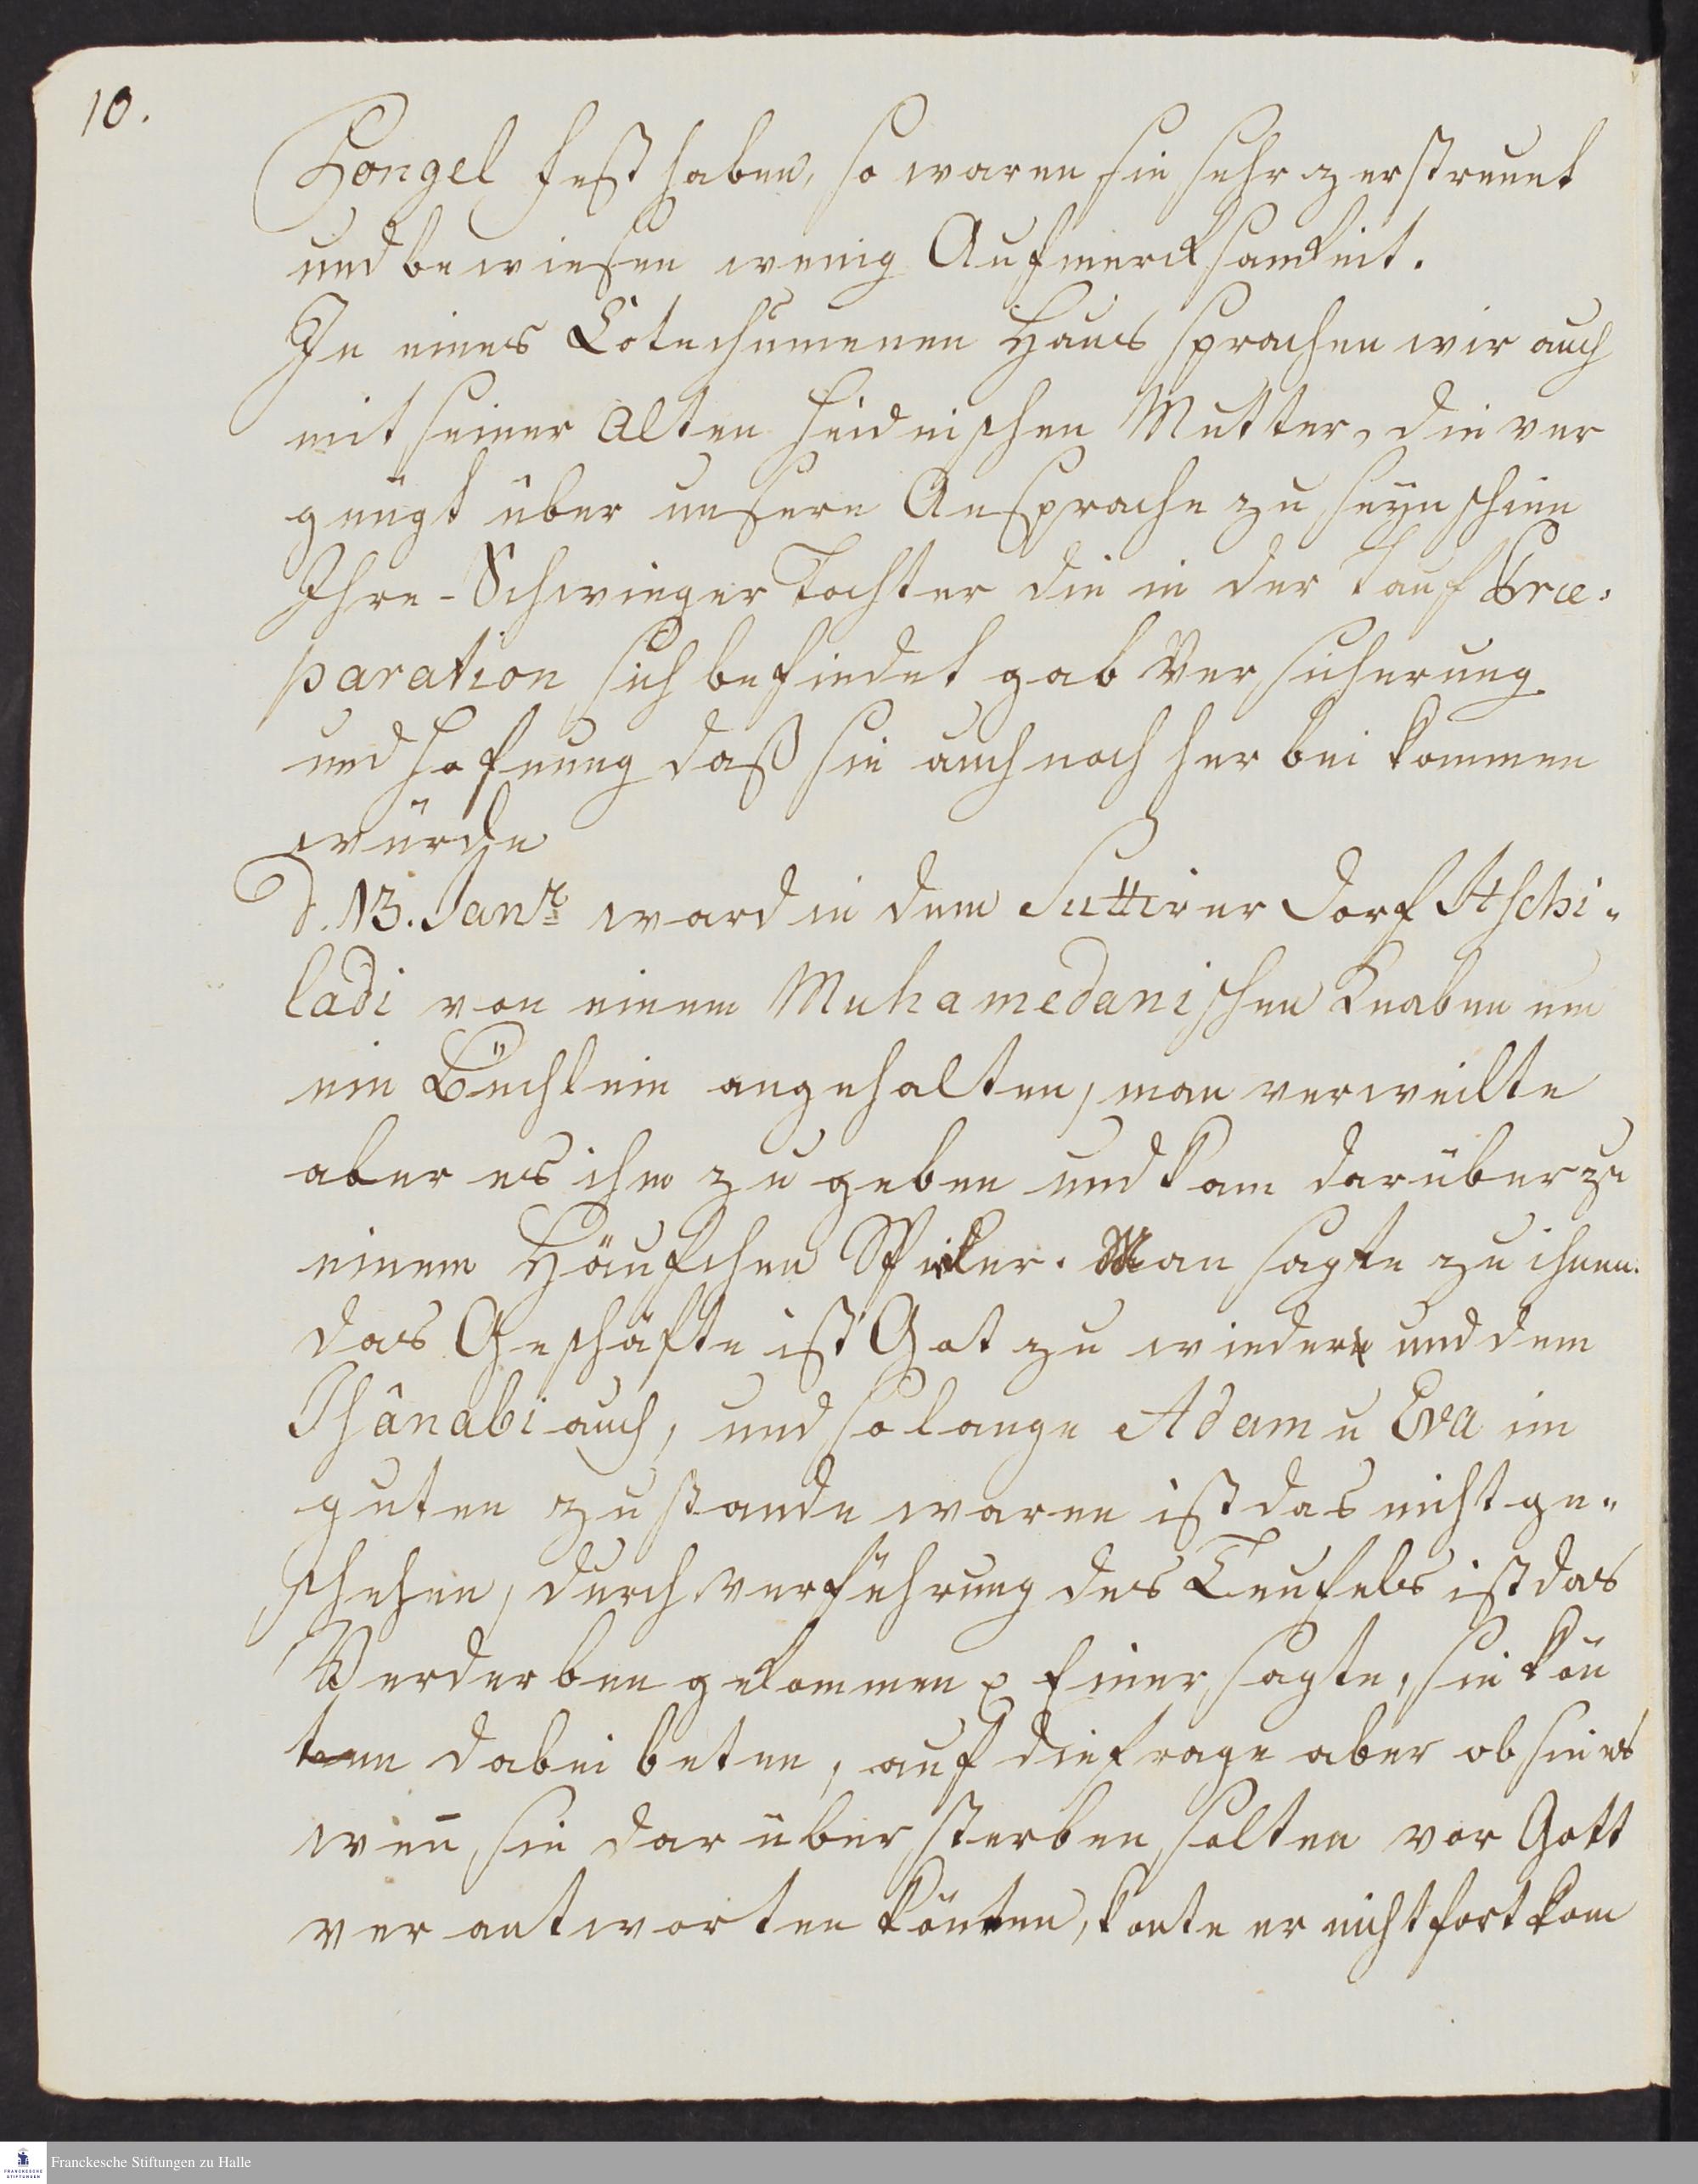 10.
Pongel Fest haben, so waren sie sehr zerstreuet
und bewiesen wenig Aufmercksamkeit.
In eines Catechumenen Haus sprachen wir auch
mit seiner alten heidnischen Mutter, die ver
gnügt über unsere Ansprache zu seyn schien
Ihre Schwieger Tochter die in der Tauf Præ:
paration sich befindet gab Versicherung
und Hofnung daß sie auch noch herbei kommen
würde
D. 13. Janr ward in dem Suttirer Dorf Atschi-
ladi von einem Muhamedanischen Knaben um
ein Büchlein angehalten, man verweilte
aber es ihm zu geben und kam darüber zu
einem Häufchen Spieler. Man sagte zu ihnen.
das Geschäfte ist Got zu wieder und dem
Ihânabi auch, und so lange Adam u Eva im
guten zustande waren ist das nicht ge-
schehen, durch Verführung des Teufels ist das
Verderben gekommen p Einer sagte, sie kön̄
ten dabei beten, auf die Frage aber ob sie es
wen̄ sie darüber sterben solten vor Gott
verantworten könten, konte er nicht fort kom
Franckesche Stiftungen zu Halle
FRANCKESCHE STIFTUNGEN